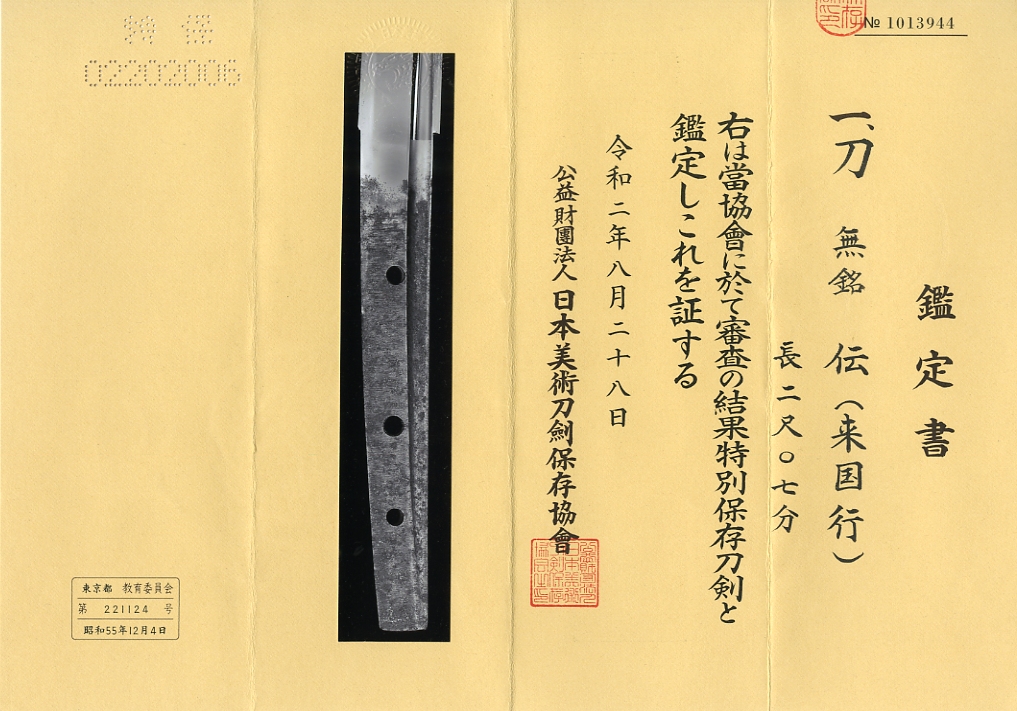 № 1013944
鑑定書
一、刀 無銘 伝(来国行)
長二尺〇七分
右は當協會に於て審査の結果特別保存刀剣と
鑑定しこれを証する
令和二年八月二十八日
公益財團法人 日本美術刀劍保存協會
特保
02202006
東京都 教育委員会
第 221124 号
昭和55年12月4日